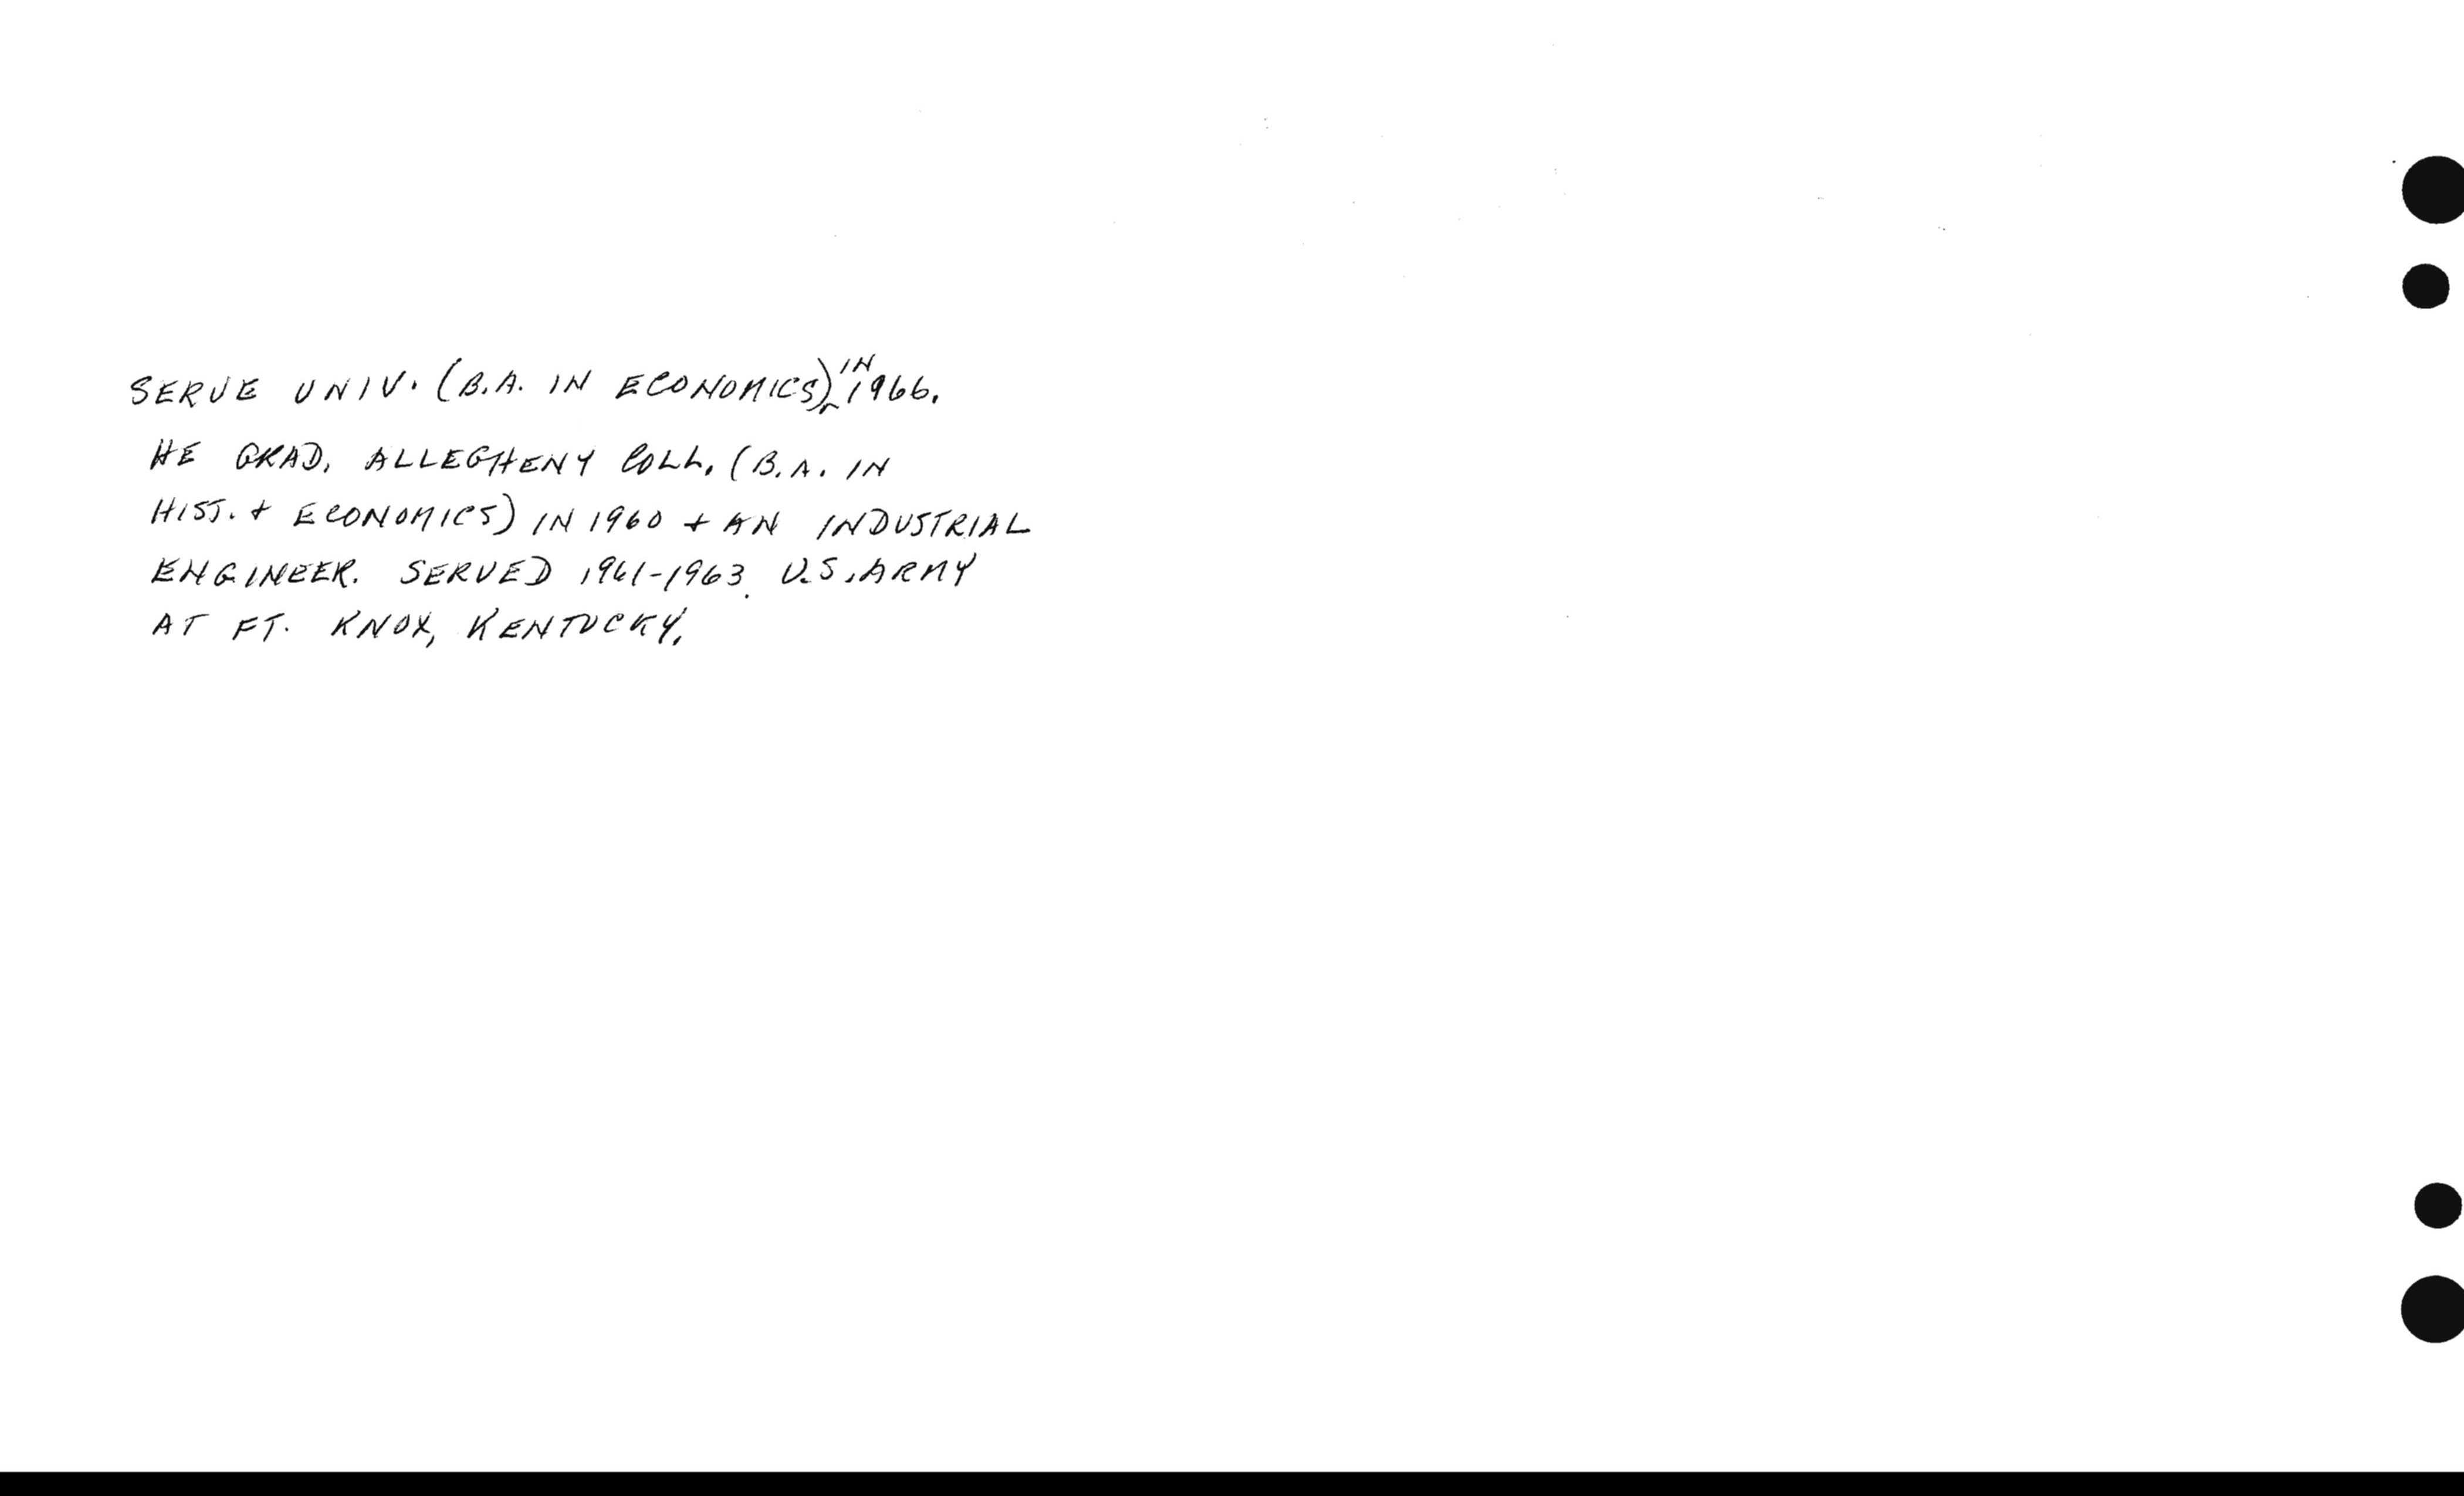 SERVE UNIV. (B.A. IN ECONOMICS) IN 1966.
HE GRAD. ALLEGHENY COLL. (B.A. IN
HIST. + ECONOMICS) IN 1960 + AN INDUSTRIAL
ENGINEER. SERVED 1961-1963. U.S. ARMY
AT FT. KNOX, KENTUCKY.